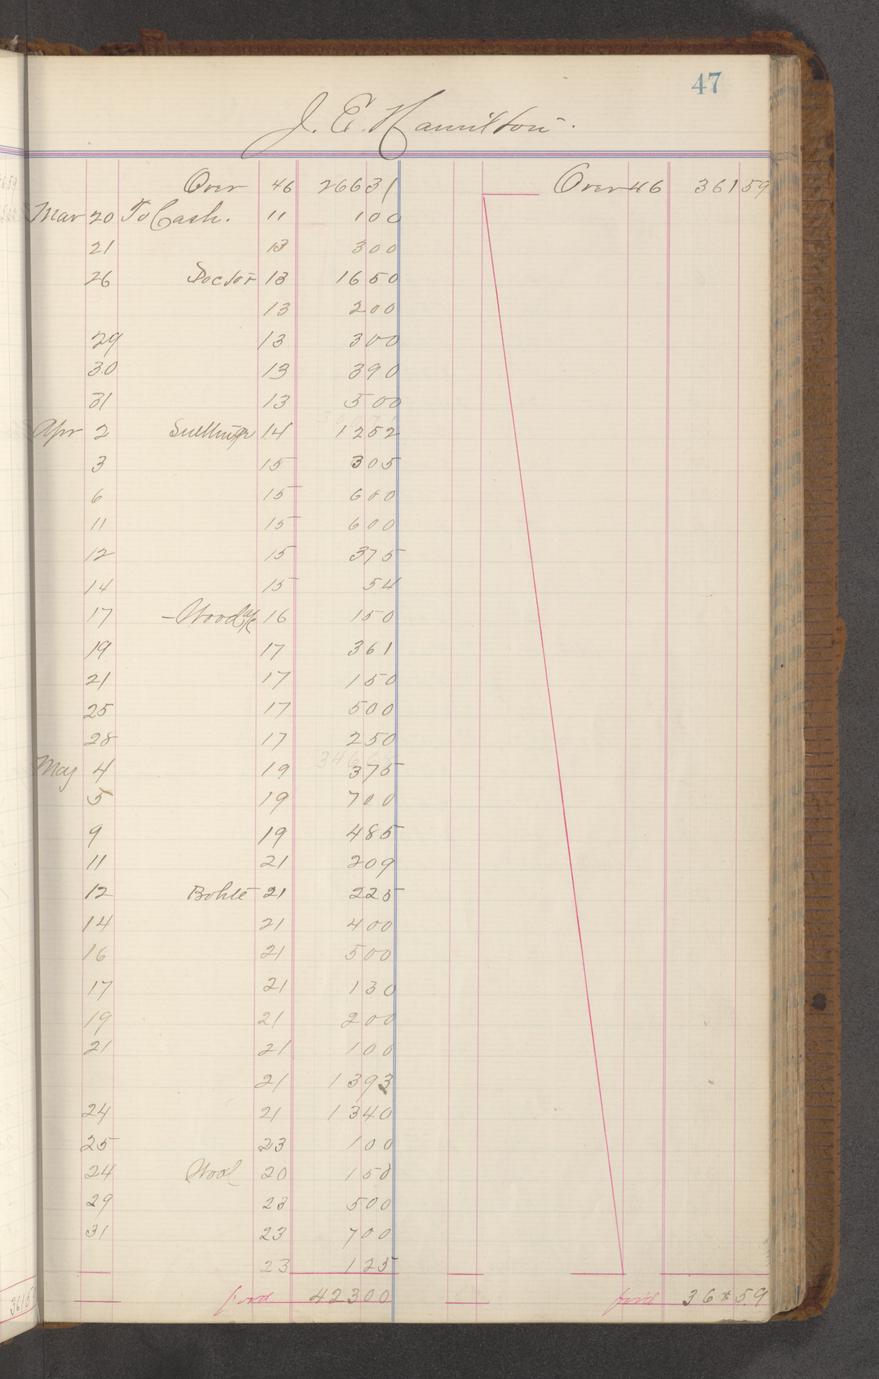 47
J. E. Hamilton.
Over 46 26631 Over 46 36159
Mar 20 To Cash. 11 100
21 13 300
26 Doctor 13 1650
13 200
29 13 300
30 13 390
31 13 500
Apr 2 14 1252
3 15 305
6 15 600
11 15 600
12 15 375
14 15 54
17 - Wood 16 150
19 17 361
21 17 150
25 17 500
28 17 250
May 4 19 375
5 19 700
9 19 485
11 21 209
12 Bohle 21 225
14 21 400
16 21 500
17 21 130
19 21 200
21 21 100
21 1393
24 21 1340
25 23 100
24 Wool 20 150
29 23 500
31 23 700
23 125
ford 42300 ford 36159